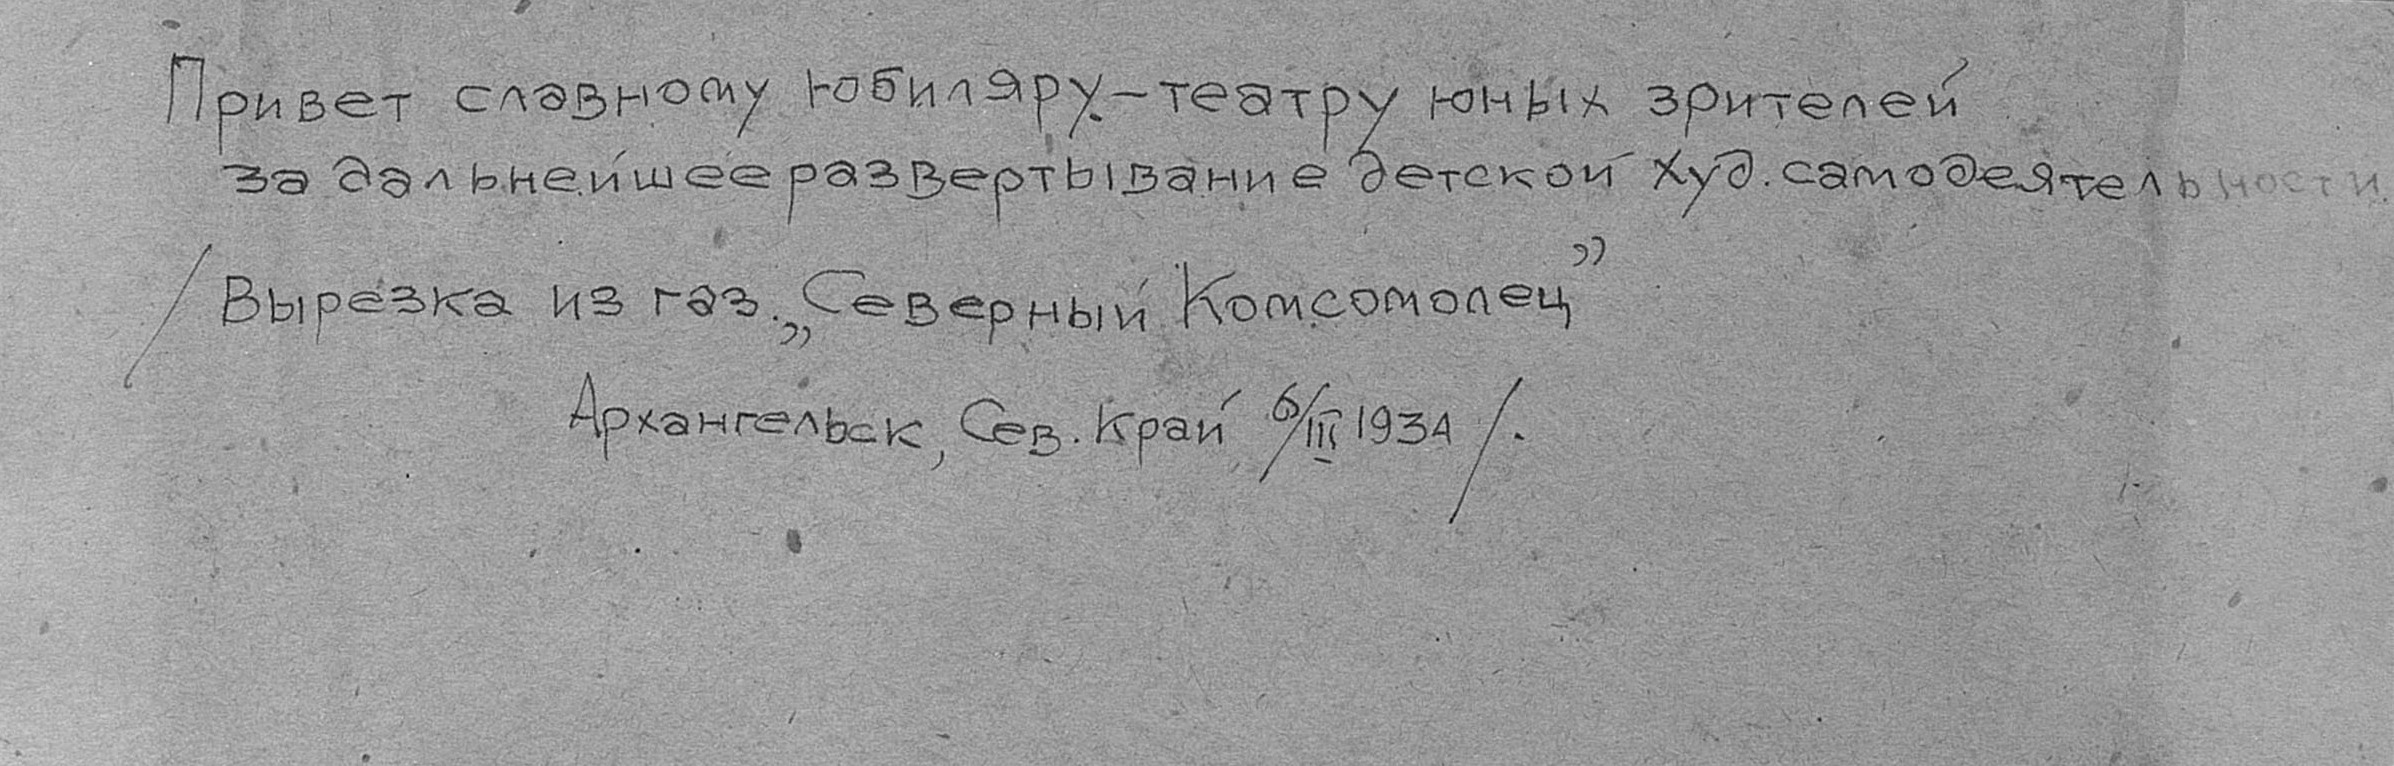 Привет славному юбиляру.-театру юных зрителей
за дальнейшее развертывание детской худ. самодеятельности
/Вырезка из газ. „Северный Комсомолец”
Архангельск, Сев. Край 6/III 1934/.